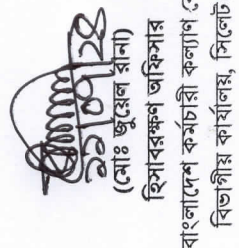 ২১/০৭/২৪
(মোঃ জুয়েল রানা)
হিসাবরক্ষণ অফিসার
বাংলাদেশ কর্মচারী কল্যাণ
বিভাগীয় কার্যালয়, সিলেট